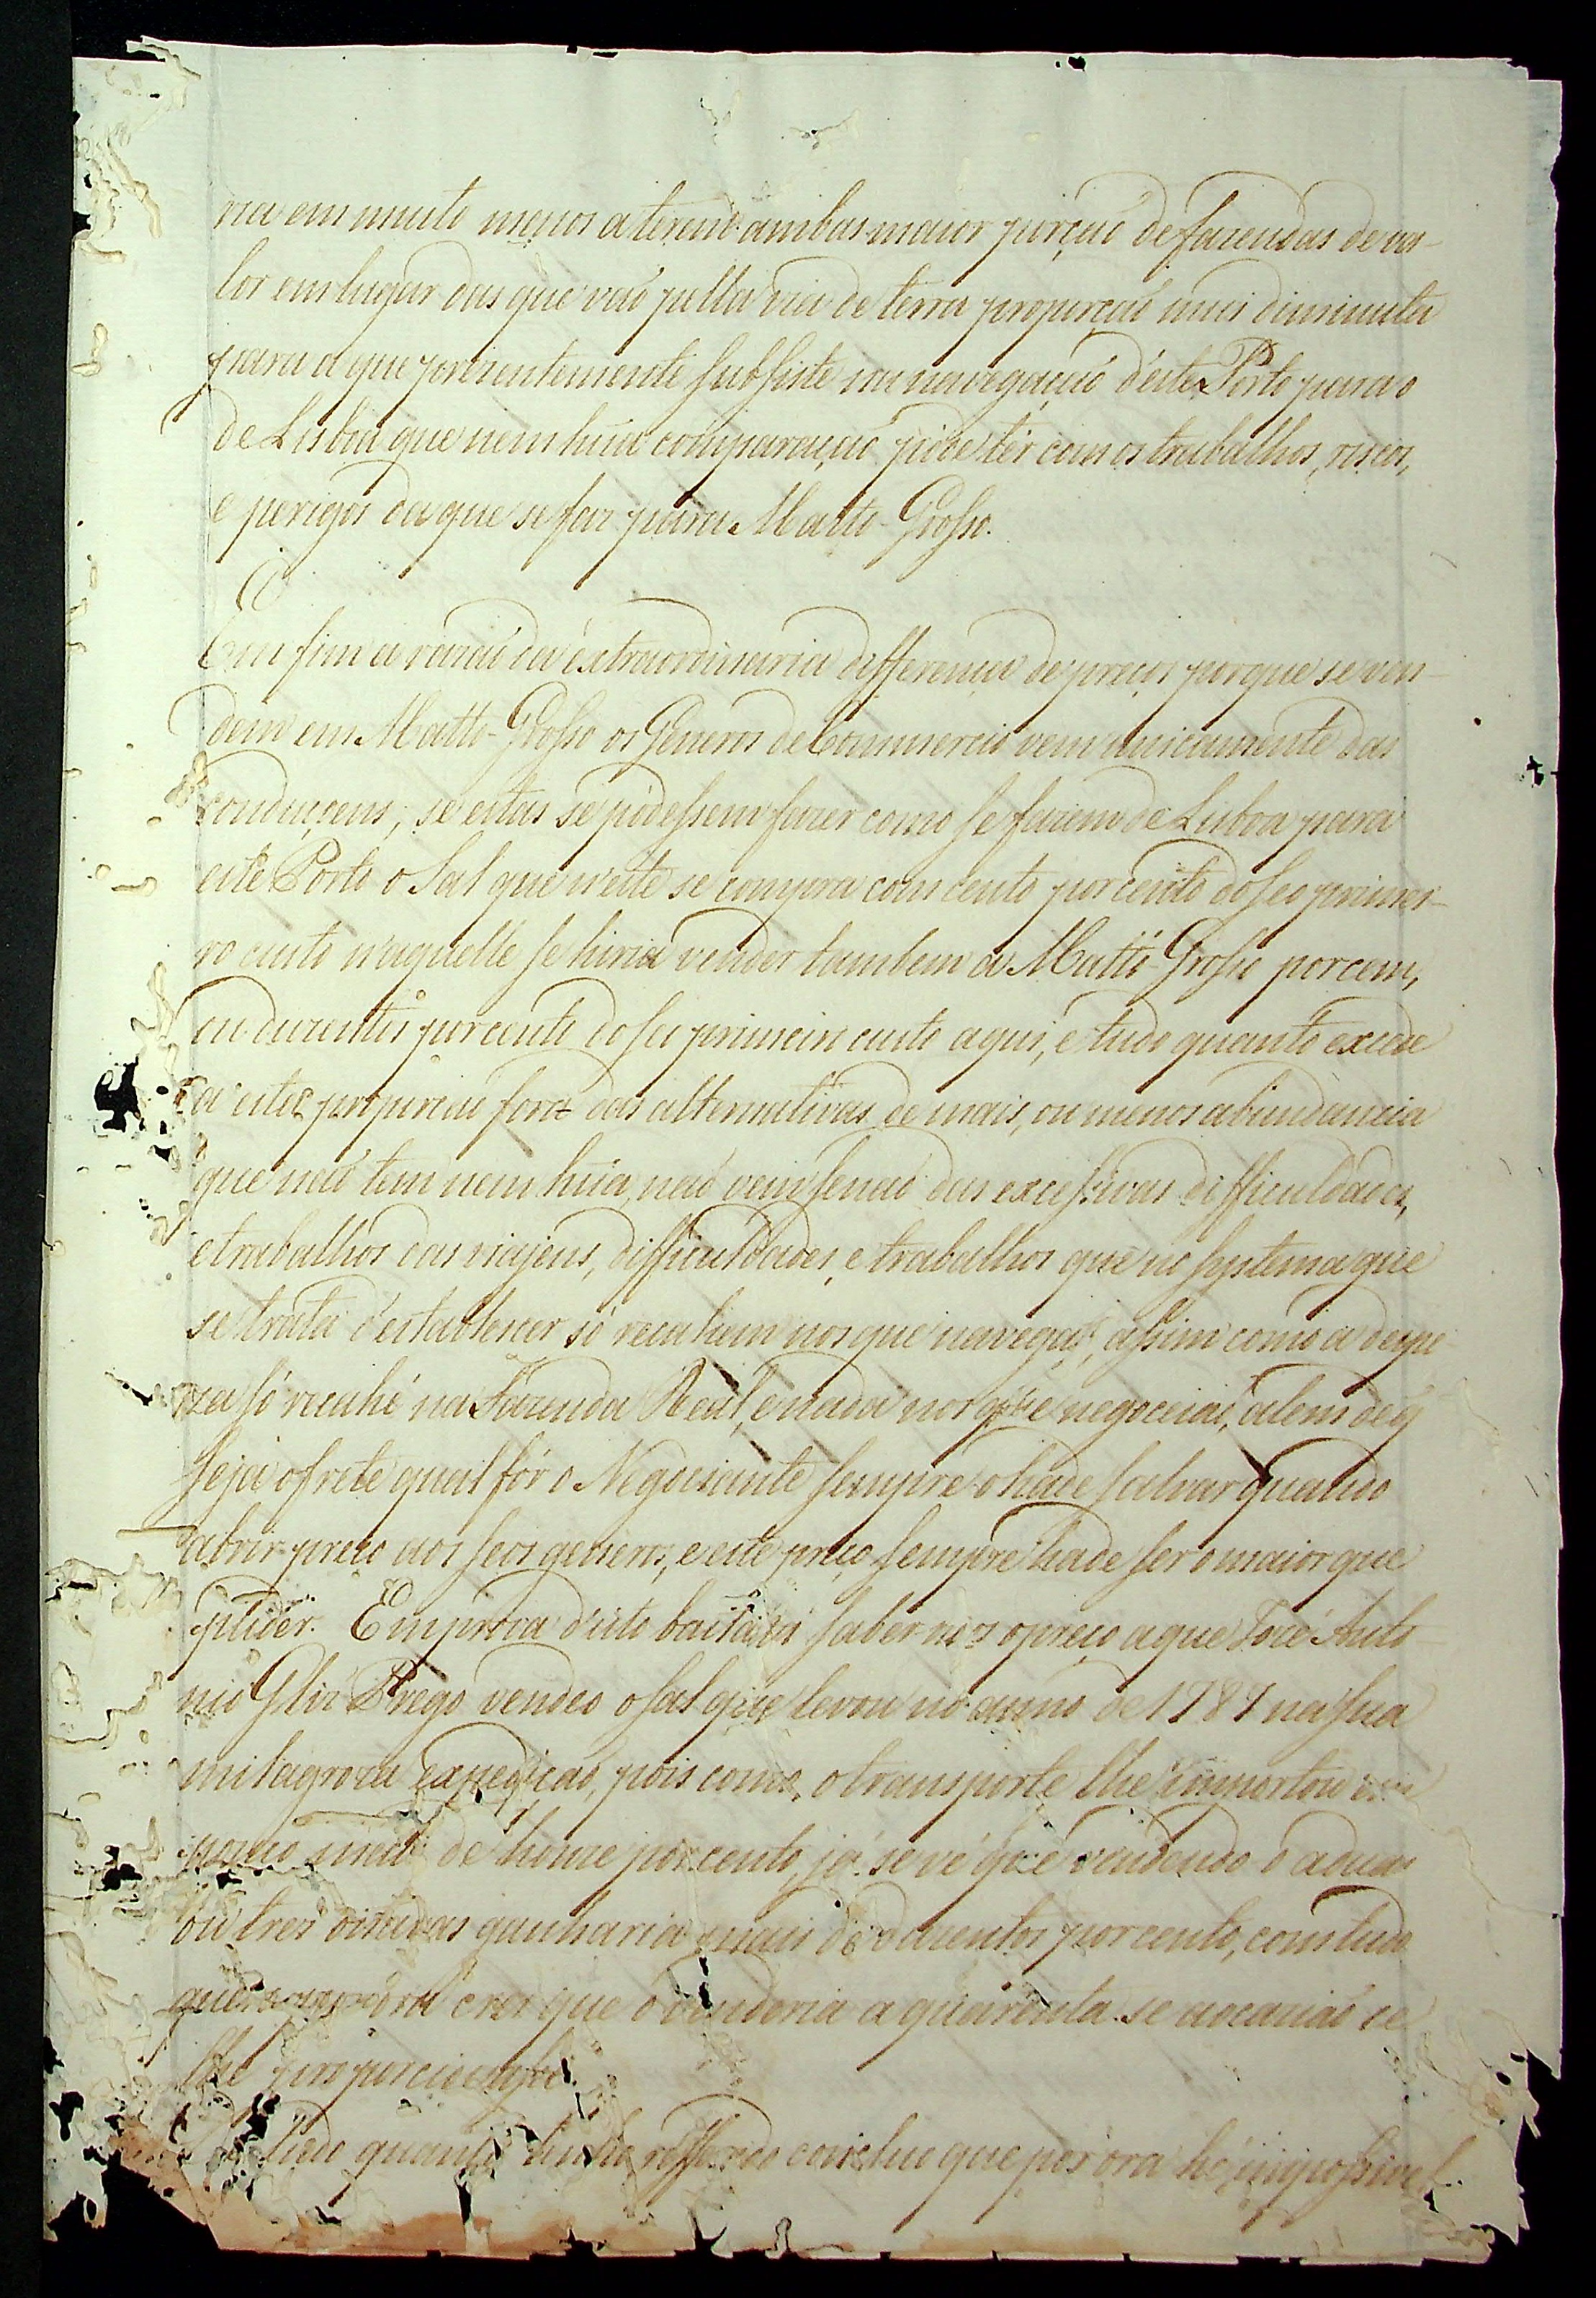 ria em muito menos a terem ambas maior porçaõ de fazendas de va-
lor em lugar das que vaõ pella via de terra proporçaõ mui diminuta
para a que prezentemente subsiste na navegaçaõ d'este Porto para o
de Lisboa que nem hũa comparaçaõ póde ter com os trabalhos, riscos,
e perigos da que se faz para Matto-Grosso.
Em fim a razaõ da extraordinaria differença de preços porque se ven-
dem em Matto-Grosso os Generos de Commercio vem unicamente das
conduçens; se estas se podessem fazer como se fazem de Lisboa para
este Porto o Sal que n'este se compra com cento por cento do seo primei-
ro custo n'aquelle se hiria vender tambem a Matto-Grosso por cem,
ou duzentos por cento do seo primeiro custo aqui, e tudo quanto excede
a esta proporçaõ fora das alternativas de mais, ou menos abundancia
que naõ tem nem hũa, naõ vem senaõ das excessivas difficuldades,
e trabalhos das viajens, difficuldades, e trabalhos que no systema que
se trata d'estabelecer só recahem nos que navegaõ, assim como a despe-
za só recahe na Fazenda Real, e nada nos que negoceiaõ, alem de q̃
seja o frete qual fôr o Negociante sempre o hade salvar quando
abrir preço aos seos generos, e este preço sempre hade ser o maior que
podér. Em prova d'isto bastará saber-mos o preço a que José Anto-
nio Glz Prego vendeo o sal que levou no anno de 1787 na sua
milagroza expediçaõ, pois como o transporte lhe importou em
pouco mais de honze por cento, já se vé que vendendo o a duas
ou tres oitavas ganharia mais de duzentos por cento, comtudo
quem poderá crer que ó venderia a quarenta se a ocaziaõ se
lhe proporcionasse.
De tudo quanto tenho refferido concluo que por ora hé impossivel